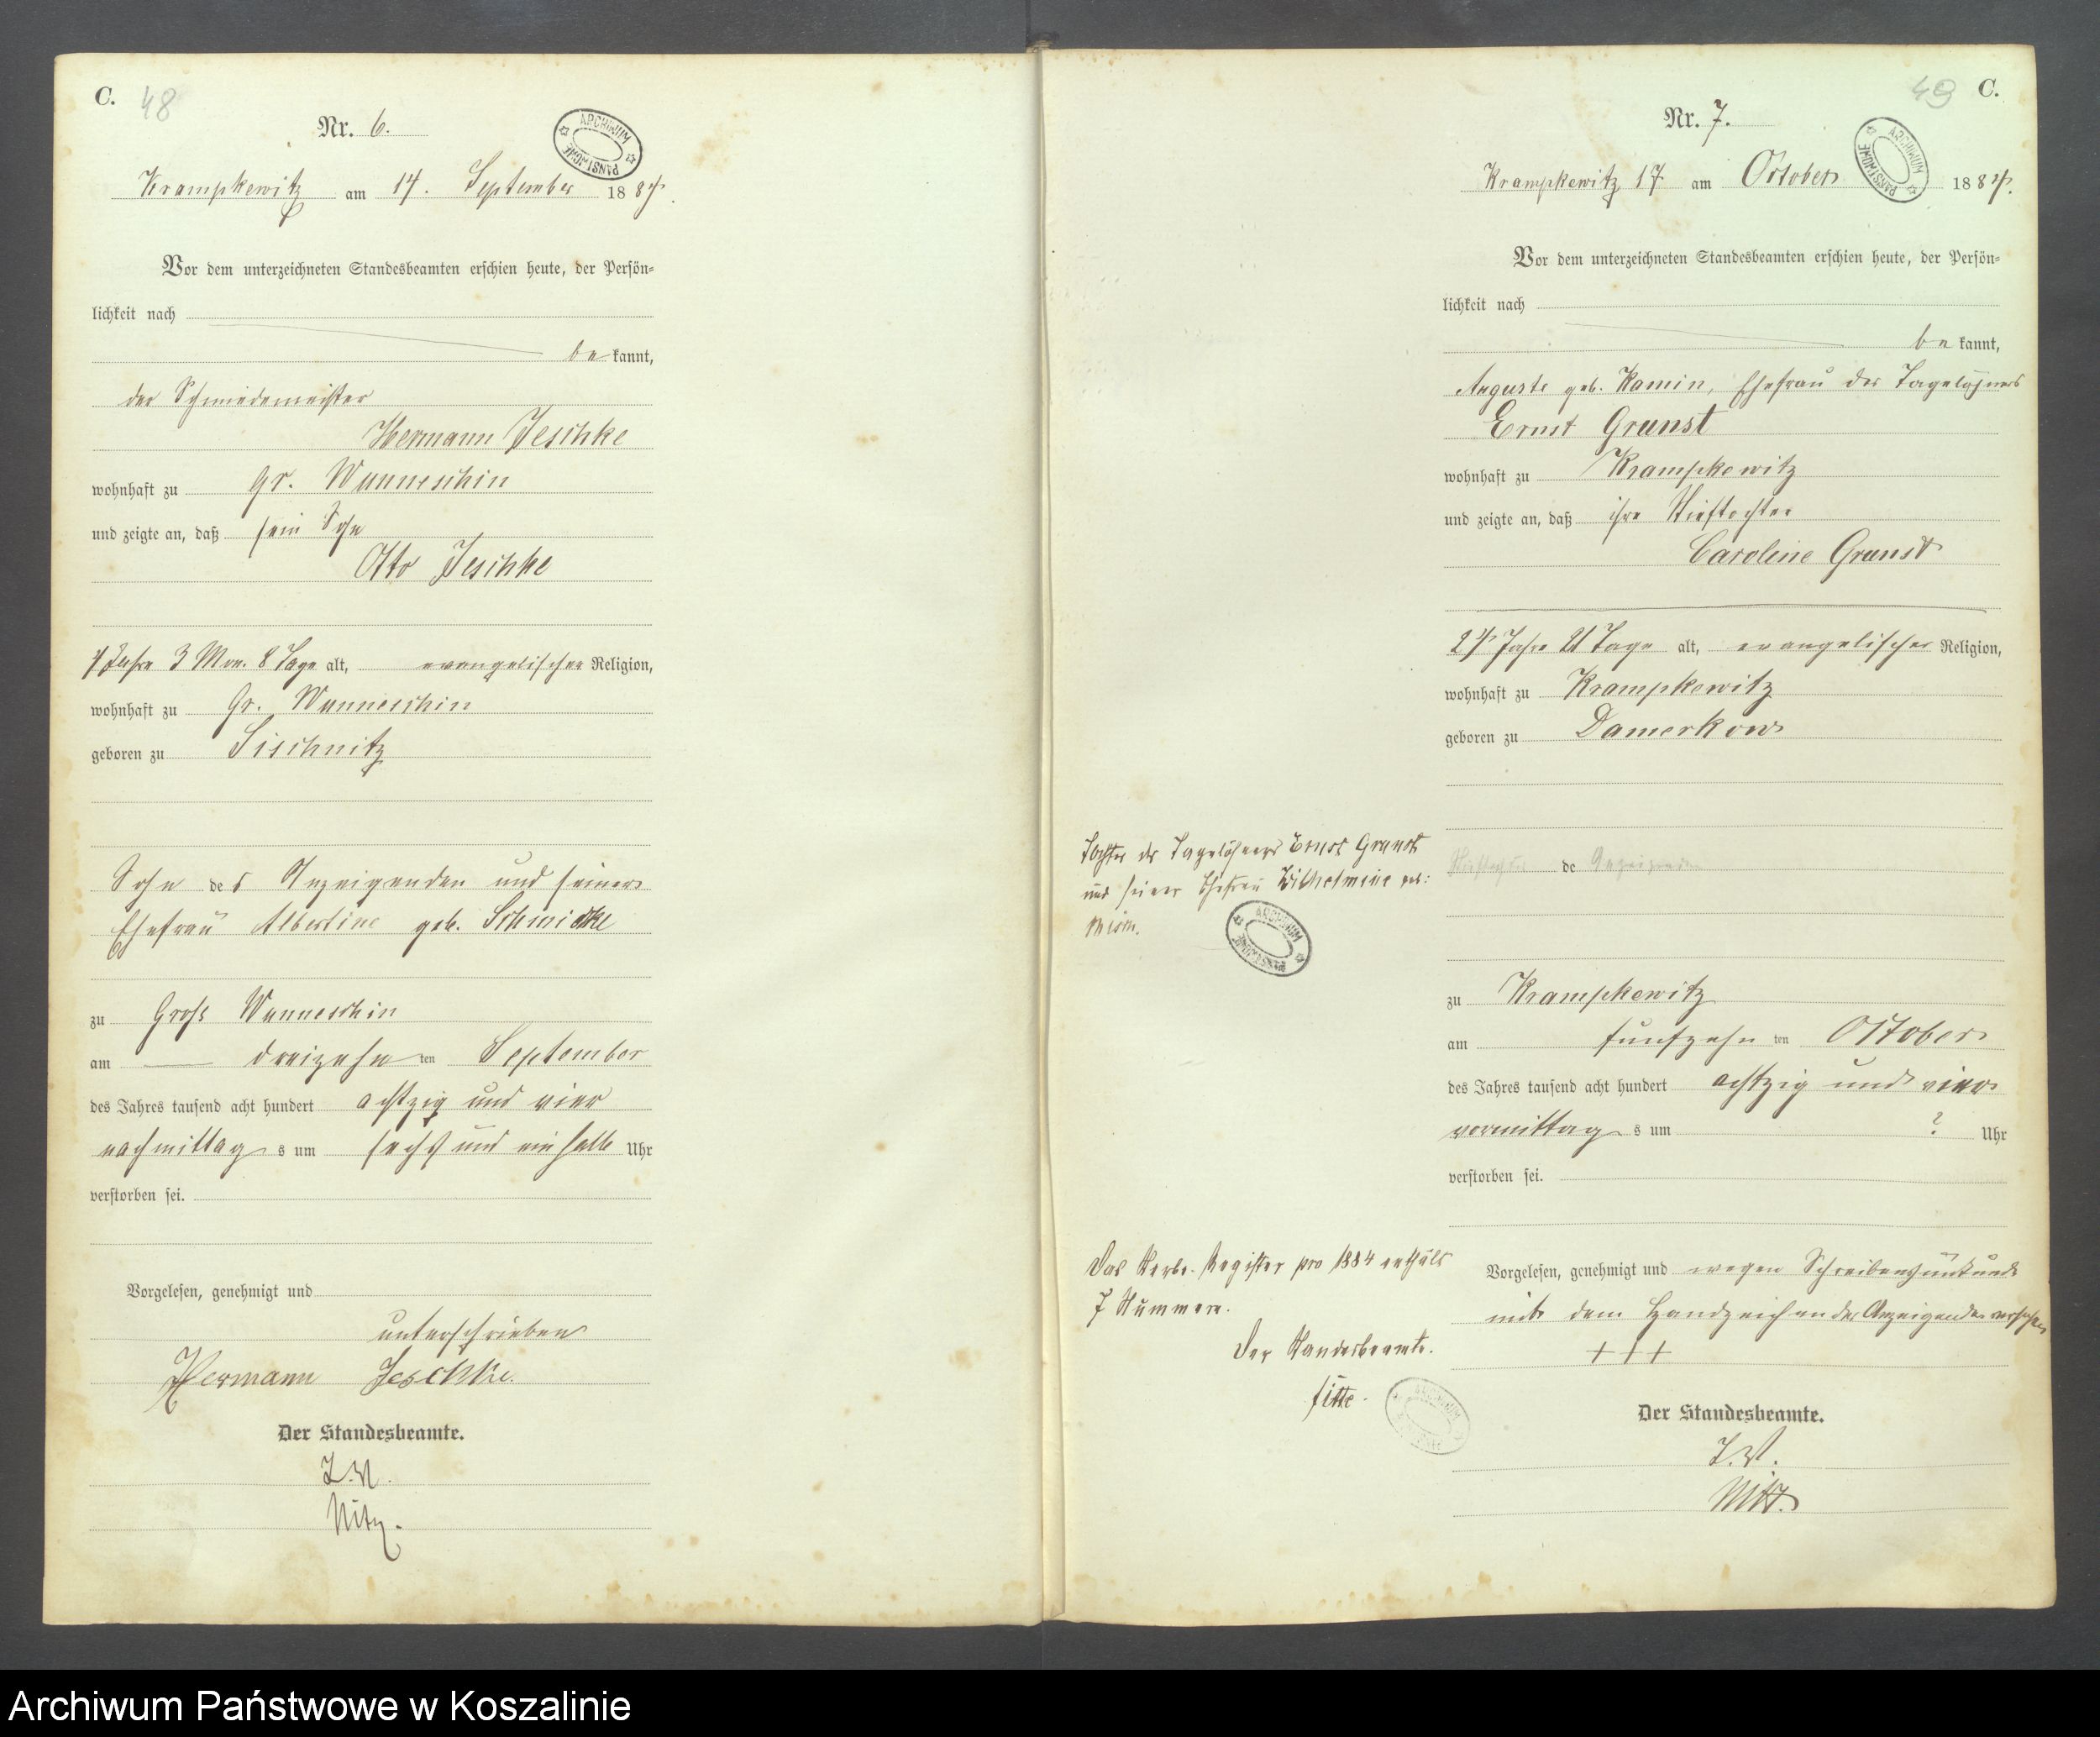 C. 48
Nr. 6.
ARCHIWUM PAŃSTWOWE
Krampkewitz am 14. September 1884.
Vor dem unterzeichneten Standesbeamten erschien heute, der Persön=
lichkeit nach
be kannt,
der Schmiedemeister
Hermann Jeschke
wohnhaft zu Gr. Wunneschin
und zeigte an, daß sein Sohn
Otto Jeschke
Jahre 3 Mon. 8 Tage alt, evangelischer Religion,
wohnhaft zu Gr. Wunneschin
geboren zu Sischnitz
Sohn des Anzeigenden und seiner
Ehefrau Albertine geb.
zu Groß Wunneschin
am dreizehn ten September
des Jahres tausend acht hundert achtzig und vier
nachmittag s um sechs und ein halb Uhr
verstorben sei.
Vorgelesen, genehmigt und
unterschrieben
Hermann Jeschke.
Der Standesbeamte.
I.V.
49 C.
Nr. 7.
ARCHIWUM PAŃSTWOWE
Krampkewitz 17 am October 1884.
Vor dem unterzeichneten Standesbeamten erschien heute, der Persön=
lichkeit nach
be kannt,
Auguste geb. Kamin, Ehefrau des Tagelöhners
Ernst Grunst
wohnhaft zu Krampkewitz
und zeigte an, daß ihre Stieftochter
Caroline Grunst
24 Jahre 21 Tage alt, evangelischer Religion,
wohnhaft zu Krampkewitz
geboren zu Damerkow
Tochter des Tagelöhners Ernst Grunst
und seiner Ehefrau Wilhelmine geb:
ARCHIWUM PAŃSTWOWE
Stieftochter de Anzeigenden
zu Krampkewitz
am fünfzehn ten October
des Jahres tausend acht hundert achtzig und vier
vormittag s um ? Uhr
verstorben sei.
Das Sterbe-Register pro 1884 enthält
7 Nummern.
Der Standesbeamte.
ARCHIWUM
Vorgelesen, genehmigt und wegen Schreibensunkunde
mit dem Handzeichen der Anzeigenden versehen
+++
Der Standesbeamte.
I.V.
Archiwum Państwowe w Koszalinie